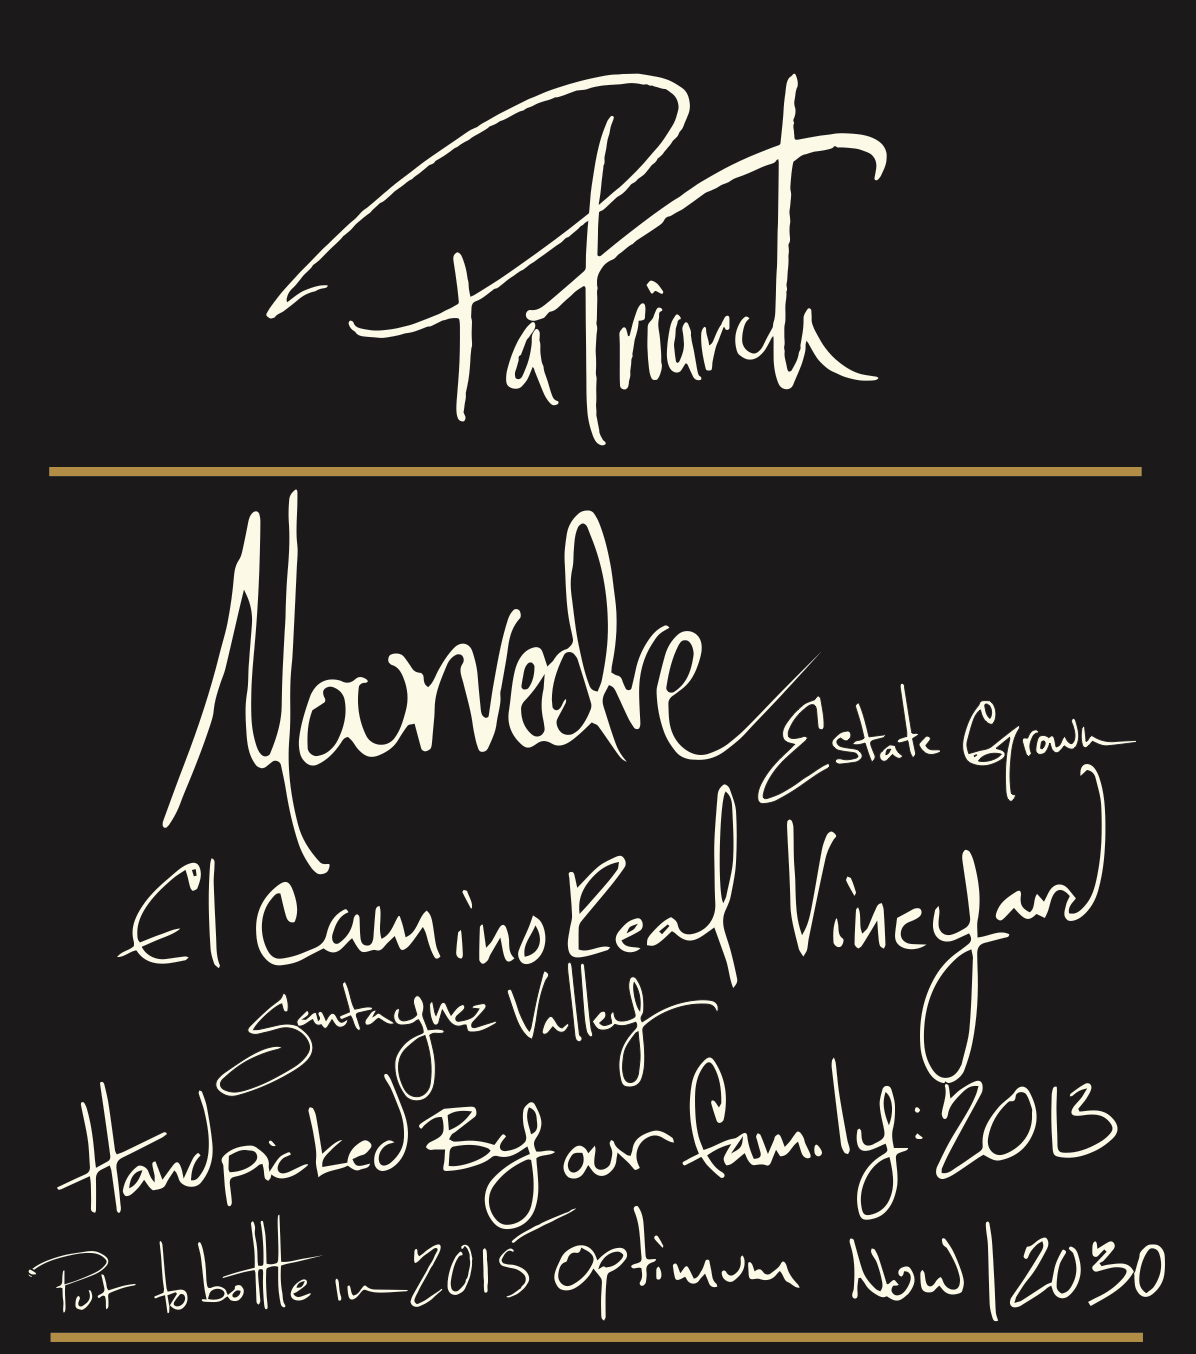 Patriarch
Mourvedre
Estate Grown
El Camino Real Vineyard
Santa ynez Valley
Handpicked By our family: 2013
Put to bottle in 2015 Optimum Now | 2030